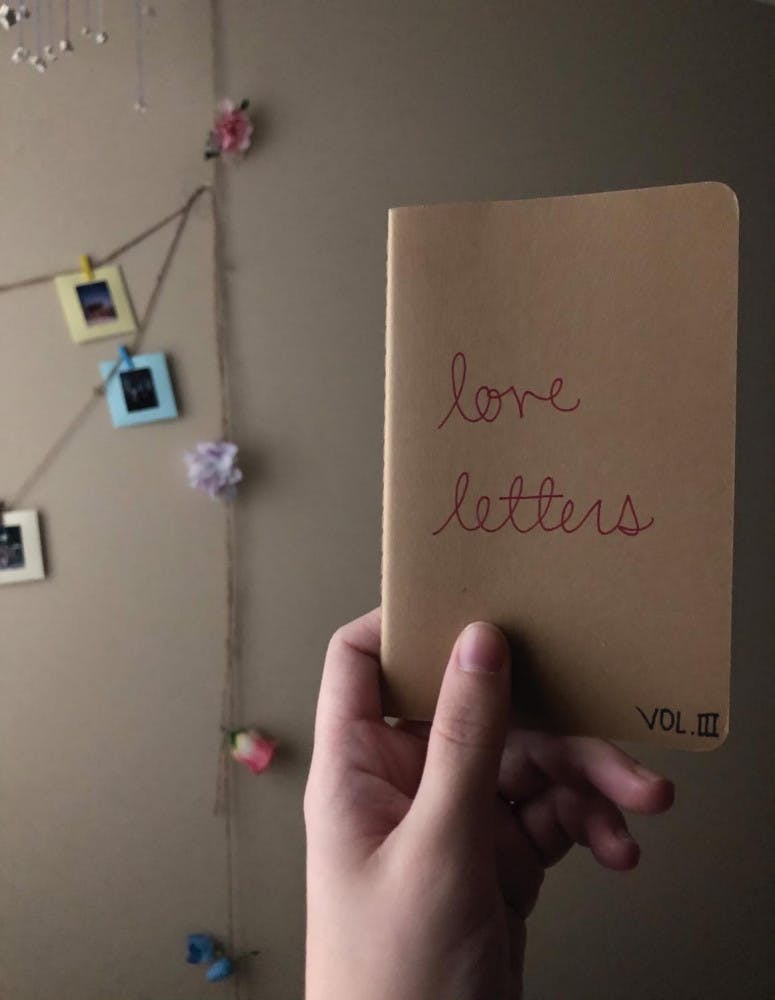 love
letters
VOL.III